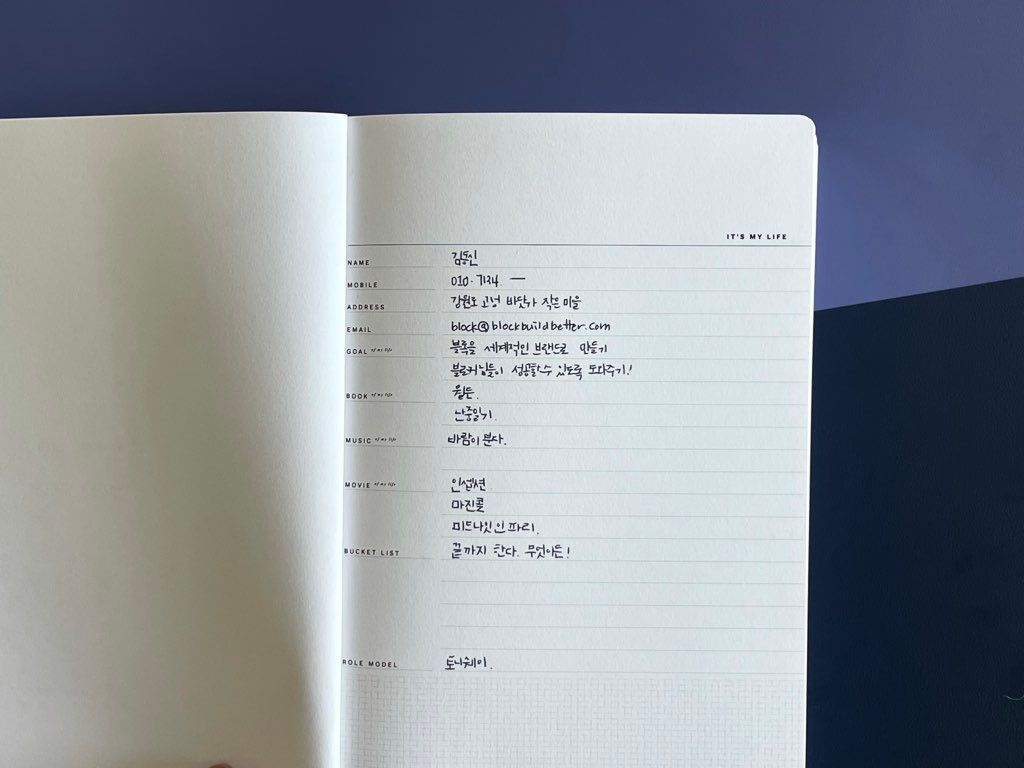 IT'S MY LIFE
NAME 김동신
MOBILE 010. 7124. —
ADDRESS 강원도 고성 바닷가 작은 마을
EMAIL block@blockbuildbetter.com
GOAL of my life 블록을 세계적인 브랜드로 만들기
블로커님들이 성공할 수 있도록 도와주기!
BOOK of my life 월든.
난중일기.
MUSIC of my life 바람이 분다.
MOVIE of my life 인셉션
마진콜
미드나잇 인 파리.
BUCKET LIST 끝까지 한다. 무엇이든!
ROLE MODEL 토니쉐이.